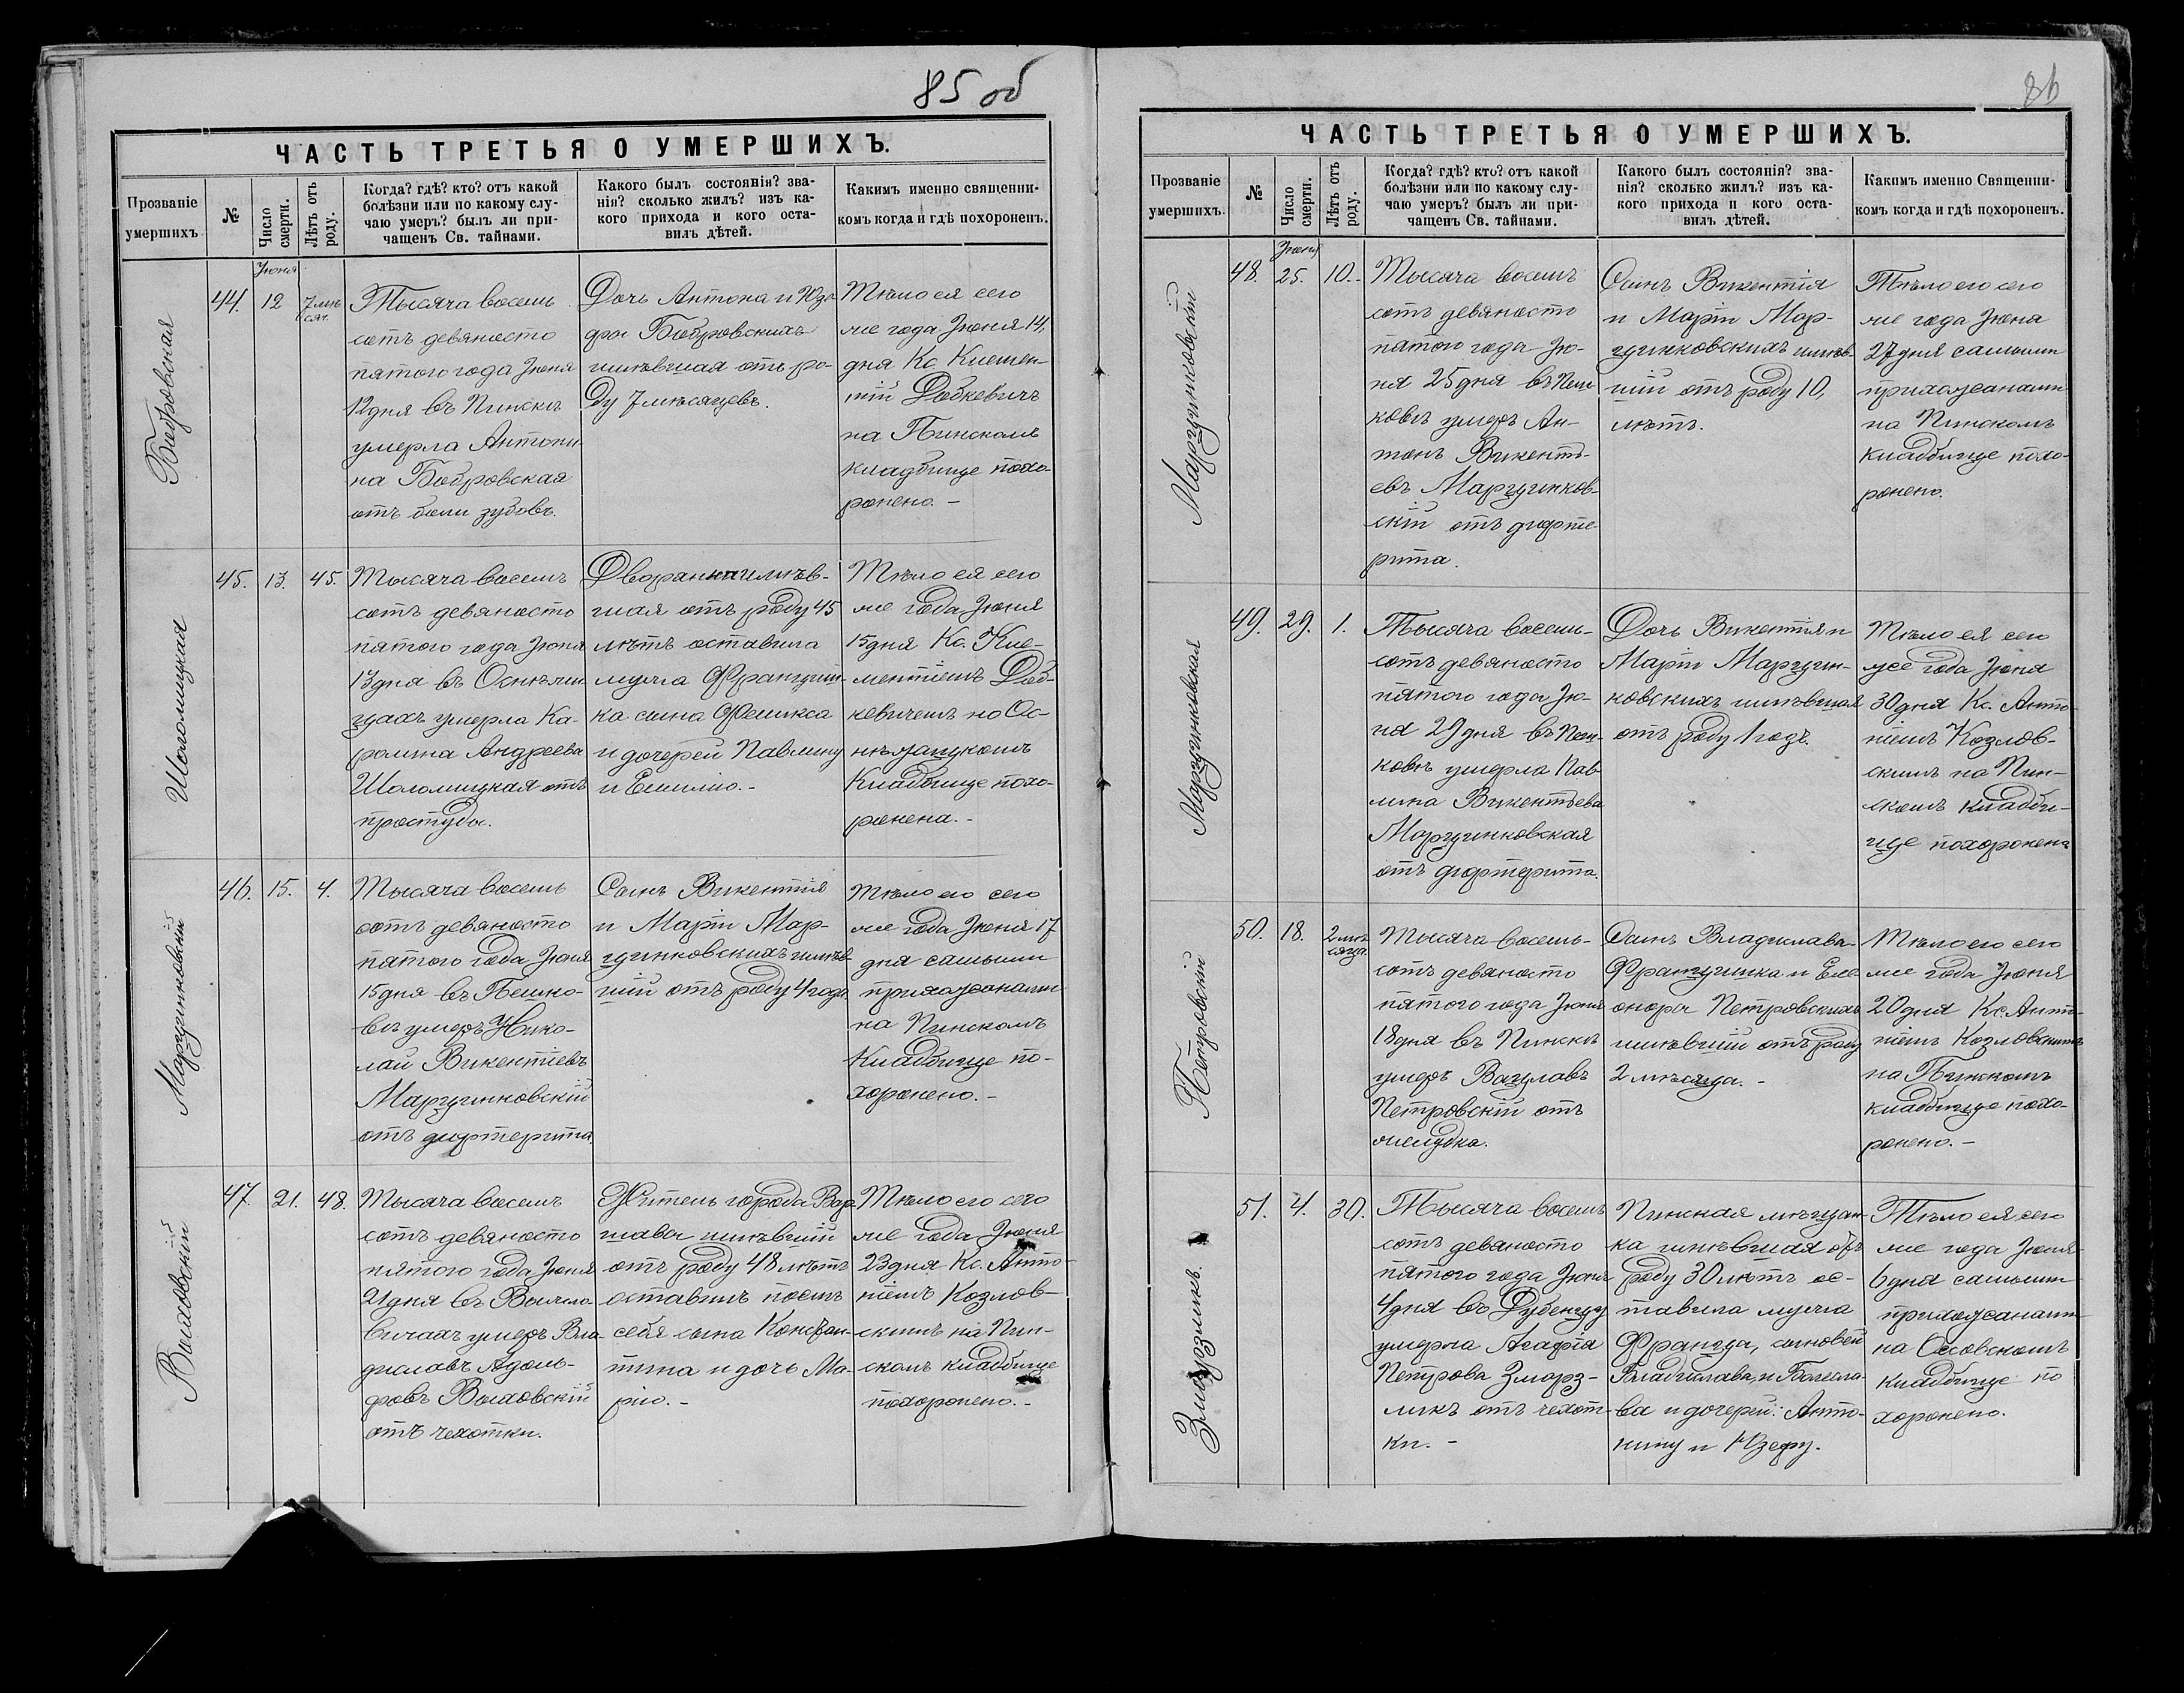 85 об
ЧАСТЬ ТРЕТЬЯ О УМЕРШИХЪ.
Прозваніе
умершихъ
№
Число
смерти.
Лѣтъ отъ
роду.
Когда? гдѣ? кто? отъ какой
болѣзни или по какому слу-
чаю умеръ? былъ ли при-
чащенъ Св. тайнами.
Какого былъ состоянія? зва-
нія? сколько жилъ? изъ ка-
кого прихода и кого оста-
вилъ дѣтей.
Какимъ именно священни-
комъ когда и гдѣ похороненъ.
Бобровская
44.
Іюня
12
7 мѣ
сяц.
Тысяча восемь
сотъ девяносто
пятого года Іюня
12 дня въ Пинскѣ
умерла Антони
на Бобровская
отъ боли зубовъ.
Дочь Антона и Юзе
фы Бобровскихъ
имѣвшая отъ ро-
ду 7 мѣсяцевъ.
Тѣло ея сего
же года Іюня 14,
дня Кс. Клемен-
тій Добкевичъ
на Пинскомъ
кладбище похо-
ронено. -
Шоломицкая
45.
13.
45.
Тысяча восемъ
сотъ девяносто
пятого года Іюня
13 дня въ
умерла Ка-
ролина Андреева
Шоломицкая отъ
простуды.
Дворянка имѣв-
шая отъ роду 45
лѣтъ оставила
мужа Франциш-
ка сына Феликса
и дочерей Павлину
и Емилію. -
Тѣло ея сего
же года Іюня
15 дня Кс. Кле-
ментіемъ Доб-
кевичемъ на Ос-
Кладбище похо-
ронена. -
Марцинковскій
46.
15.
4.
Тысяча восемь
сотъ девяносто
пятого года Іюня
15 дня въ Пешко-
вѣ умеръ Нико-
лай Викентіевъ
Марцинковскій
отъ дифтерита.
Сынъ Викентія
и Маріи Мар-
цинковскихъ имѣв
шій отъ роду 4 года
Тѣло его сего
же года Іюня 17
дня самыми
прихожанами
на Пинскомъ
Кладбище по-
хоронено. -
Выховскій
47.
21.
48.
Тысяча восемъ
сотъ девяносто
пятого года Іюня
21 дня въ
умеръ Вла-
диславъ Адоль-
фовъ Выховскій
отъ чехотки.
Житель города Вар
шавы имѣвшій
отъ роду 48 лѣтъ
оставилъ послѣ
себя сына Констан-
тина и дочь Ма-
рію. -
Тѣло его сего
же года Іюня
23 дня Кс. Анто-
ніемъ Козлов-
скимъ на Пин-
скомъ кладбище
похоронено. -
86
ЧАСТЬ ТРЕТЬЯ О УМЕРШИХЪ.
Прозваніе
умершихъ.
№
Число
смерти.
Лѣтъ отъ
роду.
Когда? гдѣ? кто? отъ какой
болѣзни или по какому слу-
чаю умеръ? былъ ли при-
чащенъ Св. тайнами.
Какого былъ состоянія? зва-
нія? сколько жилъ? изъ ка-
кого прихода и кого оста-
вилъ дѣтей.
Какимъ именно Священни-
комъ когда и гдѣ похороненъ.
Марцинковскій
48.
Іюня
25.
10.-
Тысяча восемъ
сотъ девяносто
пятого года Ію-
ня 25 дня въ Пеш
ковѣ умеръ Ан-
тонъ Викенть-
евъ Марцинков-
скій отъ дифте
рита.
Сынъ Викентія
и Маріи Мар-
цинковскихъ имѣв-
шій отъ роду 10,
лѣтъ.
Тѣло его сего
же года Іюня
27 дня самыми
прихожанами
на Пинскомъ
кладбище похо-
ронено.
Марцинковская
49.
29.
1.
Тысяча восемь-
сотъ девяносто
пятого года Ію-
ня 29 дня въ Пеш-
ковѣ умерла Пав
лина Викентьева
Марцинковская
отъ дифтерита.
Дочь Викентія и
Маріи Марцин-
ковскихъ имѣвшая
отъ роду 1 годъ.
Тѣло ея сего
же года Іюня
30 дня Кс. Анто-
ніемъ Козлов-
скимъ на Пин-
скомъ кладби-
ще похоронена
Петровскій
50.
18.
2 мѣ
сяца.
Тысяча восемь-
сотъ девяносто
пятого года Іюня
18 дня въ Пинскѣ
умеръ Вацлавъ
Петровскій отъ
желудка.
Сынъ Владислава-
Францишка и Еле
оноры Петровскихъ
имѣвшій отъ роду
2 мѣсяца. -
Тѣло его сего
же года Іюня
20 дня Кс. Анто-
ніемъ Козловскимъ
на Пинскомъ
кладбище похо-
ронено. -
Змарзликъ.
51.
4.
30.
Тысяча восемъ
сотъ девяносто
пятого года Іюня
4 дня въ Дубенцу
умерла Агафія
Петрова Змарз-
ликъ отъ чехот-
ки. -
Пинская мѣщан-
ка имѣвшая отъ
роду 30 лѣтъ ос-
тавила мужа
Франца, сыновей
Владислава, и Болесла-
ва и дочерей: Анто-
нину и Юзефу.
Тѣло ея сего
же года Іюня
6 дня самыми
прихожанами
на Осовскомъ
кладбище по
хоронено.